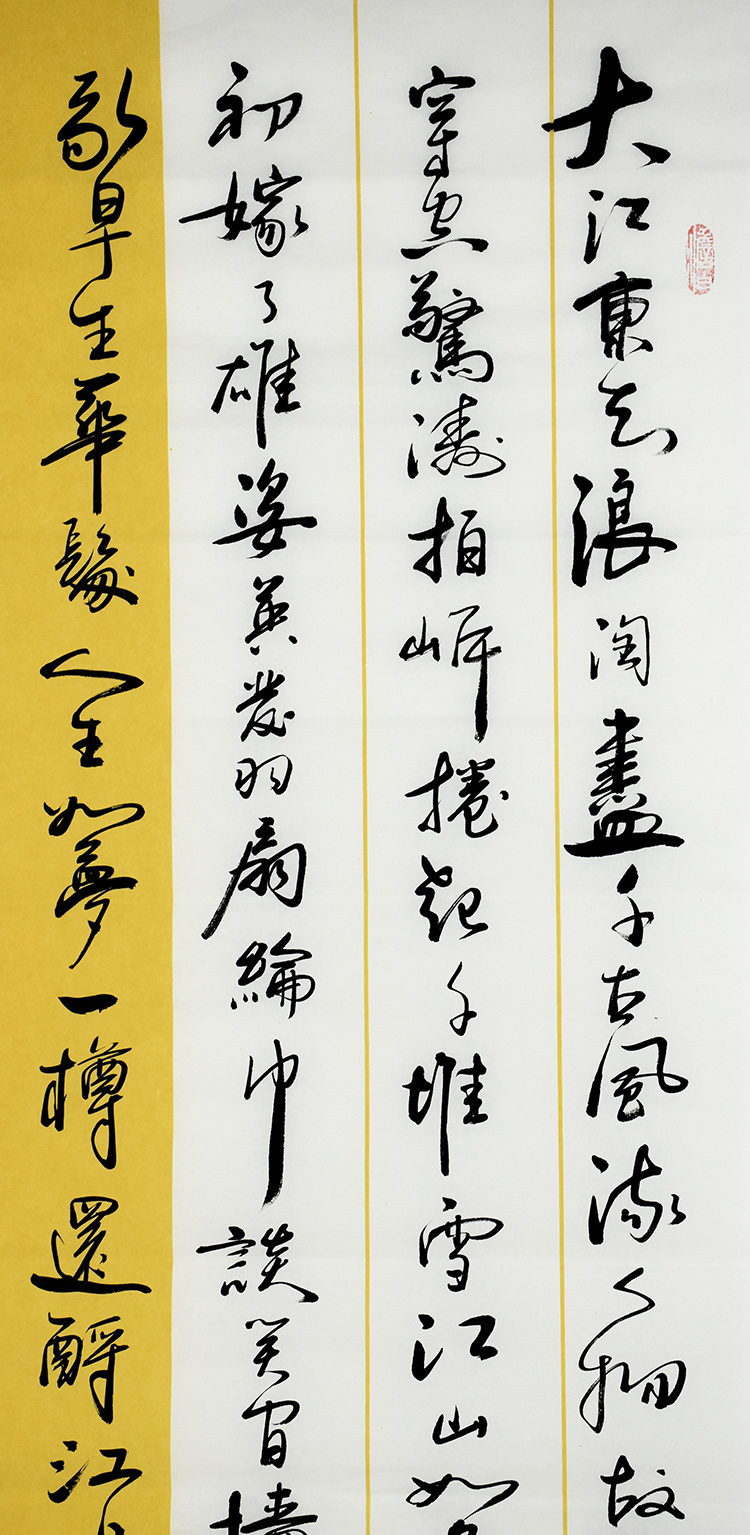 大江東去浪淘盡千古風流人物故
穿空驚濤拍岸捲起千堆雪江山如
初嫁了雄姿英發羽扇綸巾談笑間檣
我早生華髮人生如夢一樽還酹江